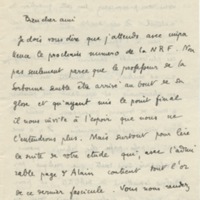 Bien cher ami
Je dois vous dire que j'attends avec impa
tience le prochain numéro de la NRF. Non
pas seulement parce que le professeur de la
Sorbonne arrive au bout de sa
glose et qu'ayant mis le point final
il nous invite à l'espoir que nous ne
l'entendrons plus. Mais surtout pour lire
la suite de votre étude qui, avec l'admi
rable page d'Alain contient tout l'or
de ce dernier fascicule. Vous nous rendez